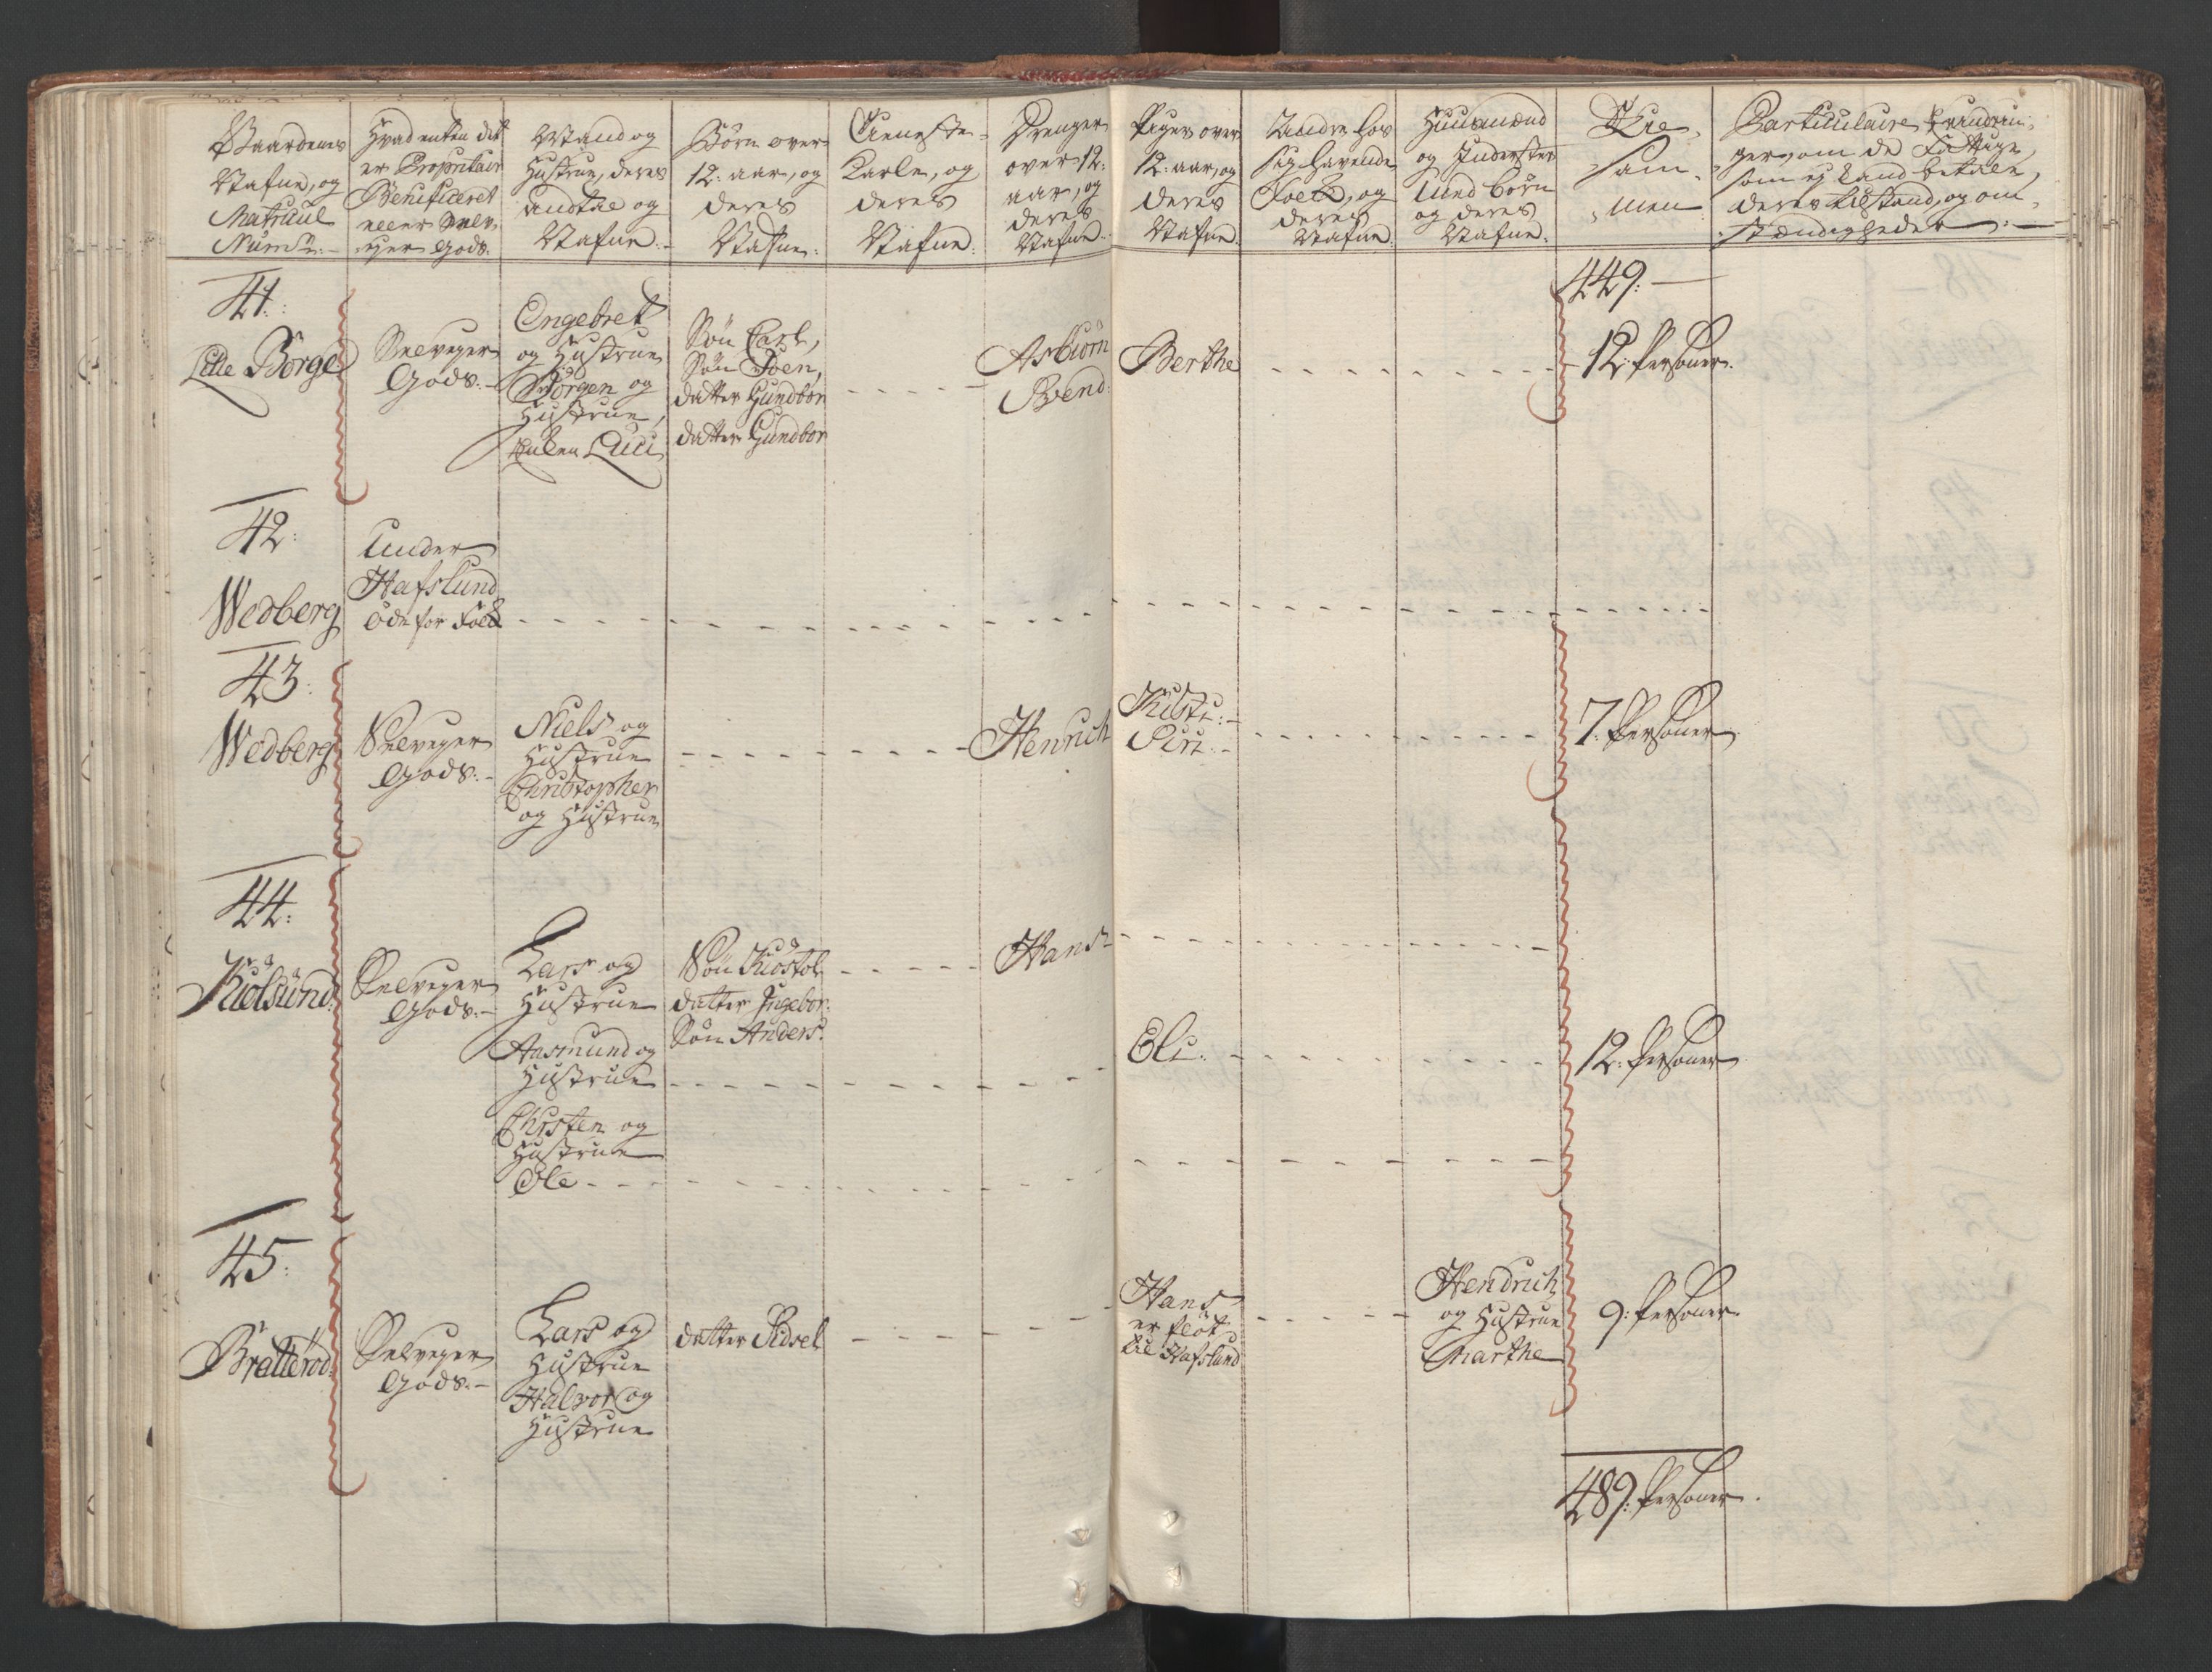 Gaardenes
Nafne, og
Matricul
Num:
Hvad enten det
er Proprietair
Benificeret
eller Selv-
eyer Gods.
Mand og
Hustrue, deres
andtal og
Nafne.
Børn over
12: aar, og
deres
Nafne:
Tieneste-
Karle, og
deres
Nafne:
Drenger
over 12:
aar, og
deres
Nafne:
Piger over
12: aar, og
deres
Nafne.
Andre hos
sig havende
Folk, og
deres
Nafne.
Huusmænd
og Inderster
med børn
og deres
Nafne.
Til-
sam-
men
Particulaire Erindrin-
ger, om de Fattige,
som ey kand betale,
deres tilstand, og om-
stændigheder
449:
41:
Lille Borge
Selveyer
Gods.
Engebret
og Hustrue
Børgen og
Hustrue,
Enken Luci
Søn Carl,
Søn Joen,
datter Gundbor
datter Gundbor
Asbiørn
Svend:
Berthe
12: Personer.
42:
Wedberg
Under
Hafslund
Øde for Folk
43:
Wedberg
Selveyer
Gods.
Niels og
Hustrue
Christopher
og Hustrue
Henrich
Kisti:
Siri:
7: Personer
44:
Kiølsund
Selveyer
Gods.
Lars og
Hustrue
Aasmund og
Hustrue
Christen og
Hustrue
Ole
Søn Kiøstol
datter Ingebor:
Søn Anders.
Hans
Eli:
12: Personer
45:
Bratterød
Selveyer
Gods.
Lars og
Hustrue
Halvor og
Hustrue
datter Sidsel
Hans
er fløt
til Hafslund
Hendrich
og Hustrue
Marthe
9: Personer
489: Personer.